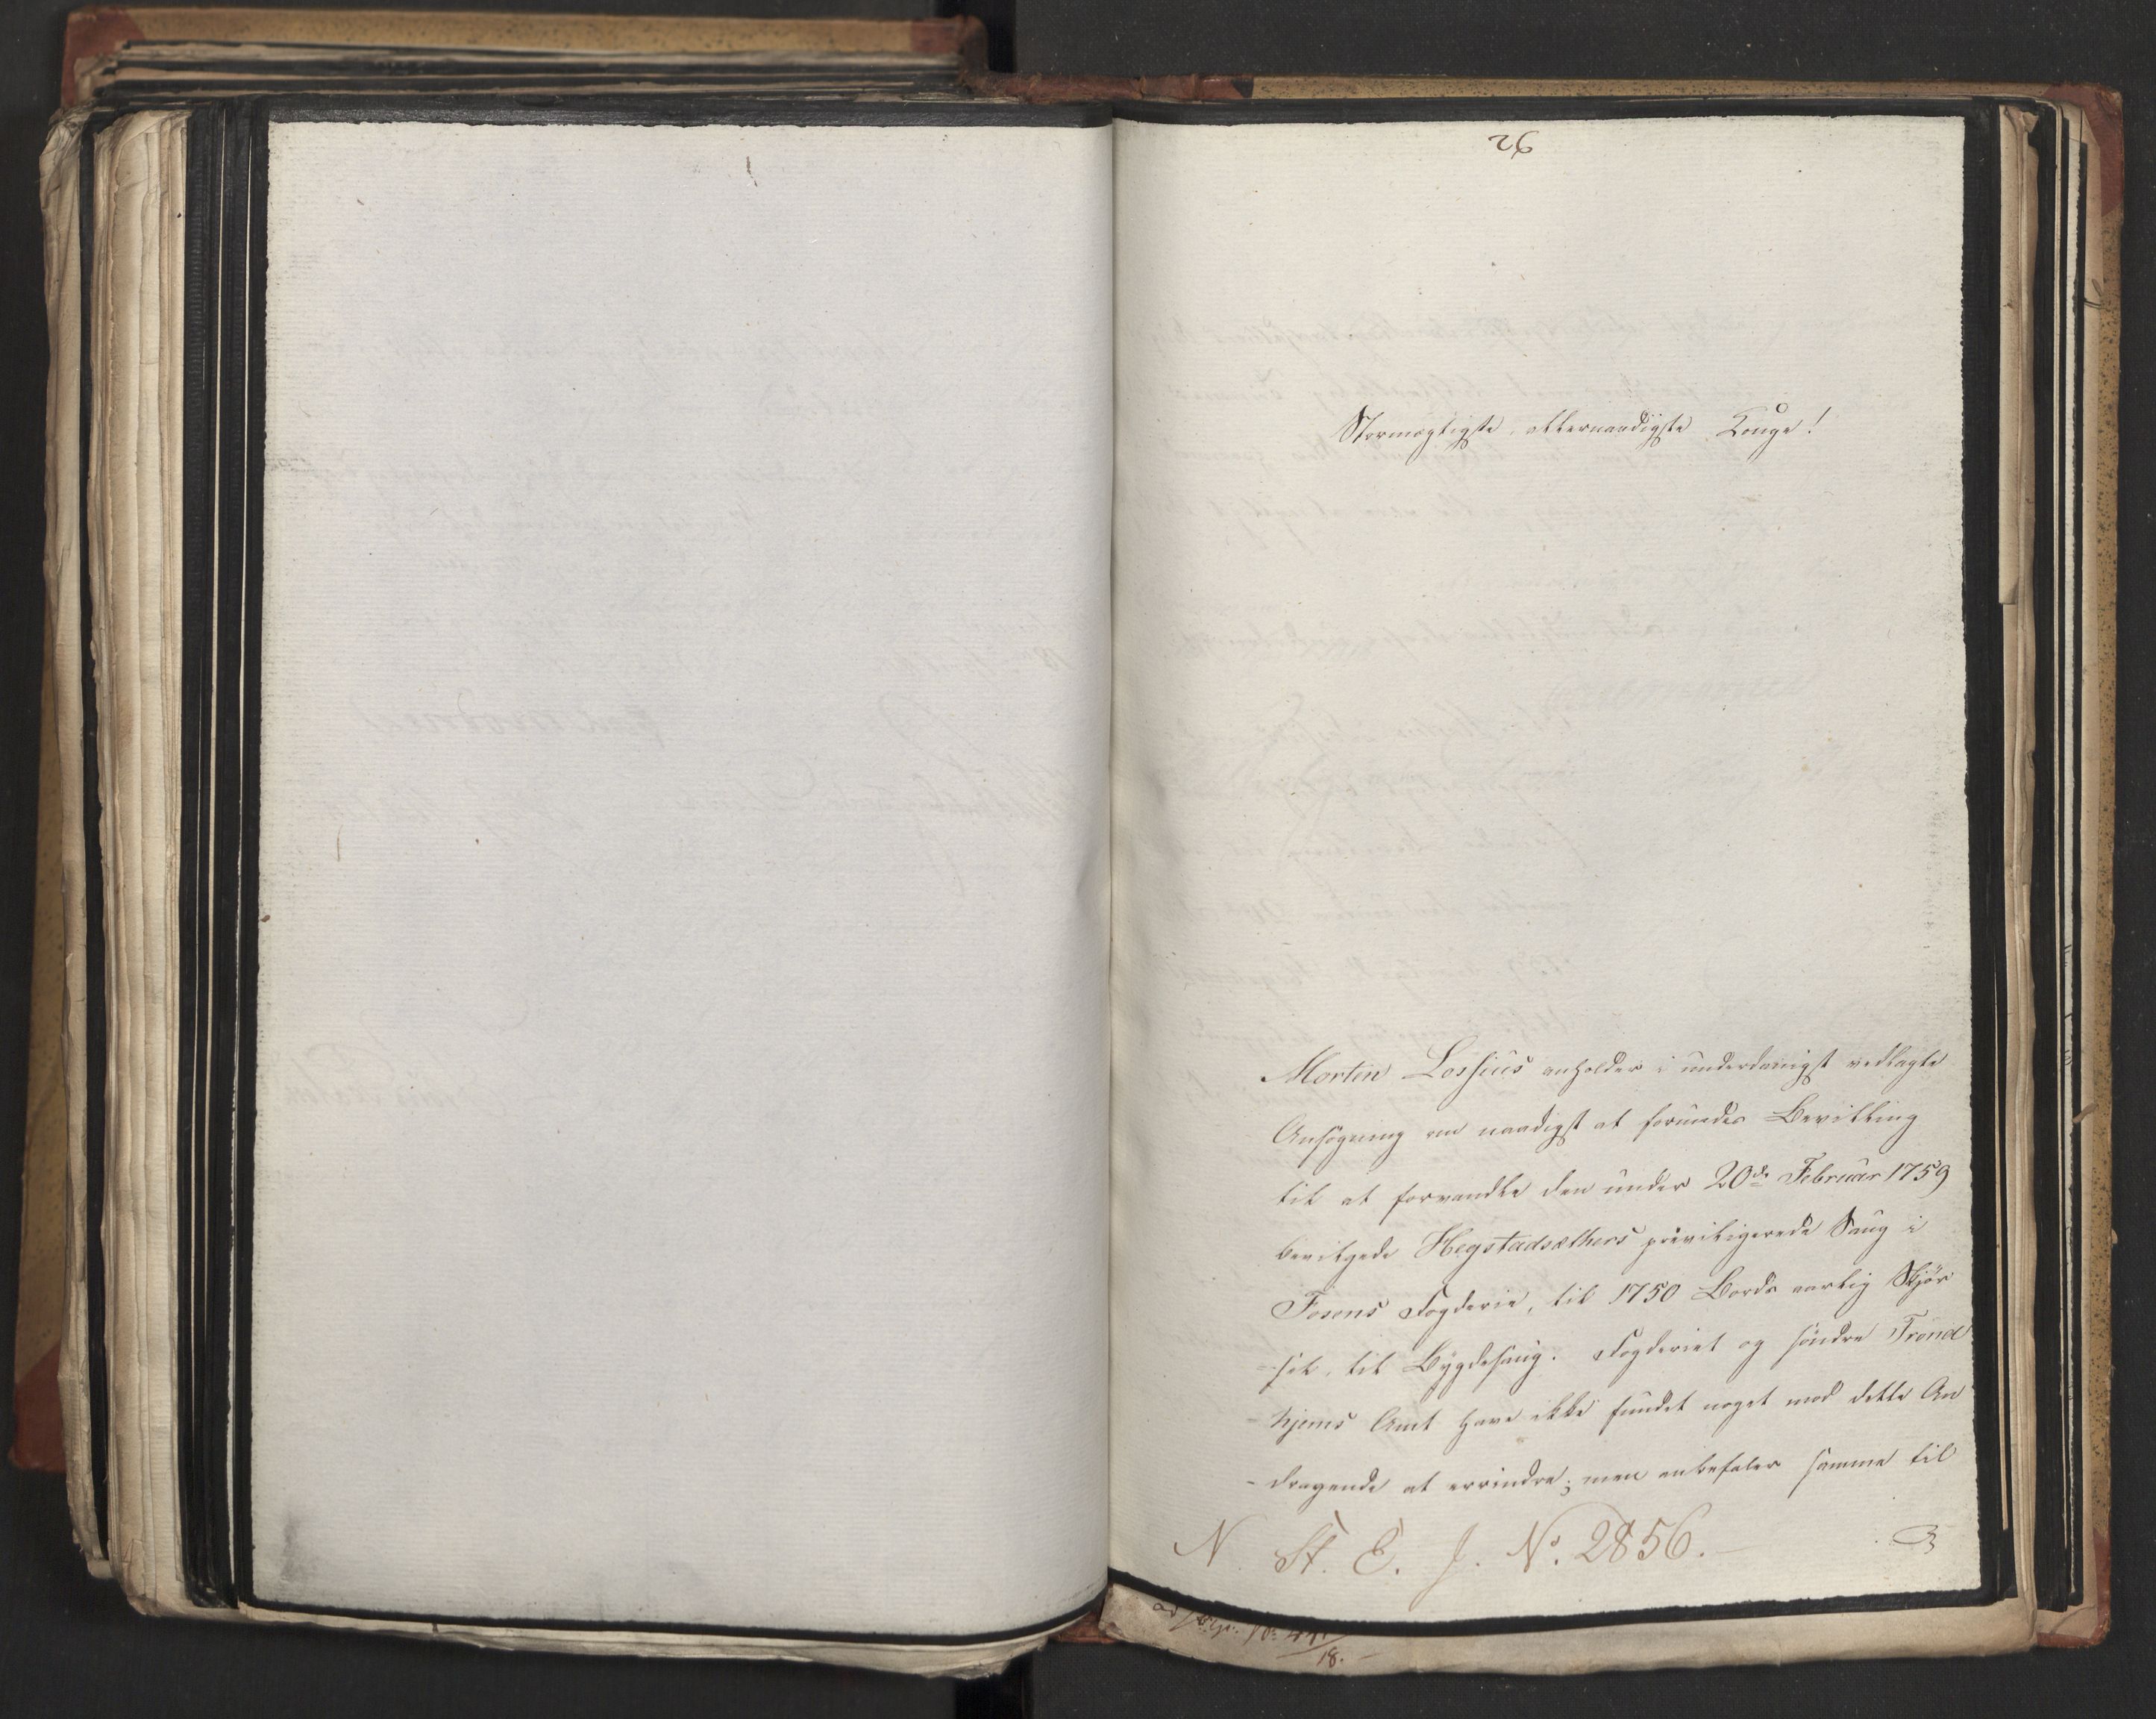 26
Stormægtigste, allernaadigste Konge!
Morten Lossius anholder i underdanigst vedlagte
Ansøgning om naadigst at forundes Bevilling
til at forvandle den under 20de Februar 1759
bevilgede Hegstadsæthers priviligerede Saug i
Fosens Fogderie, til 1750 Bords aarlig Skjør
-sel, til Bÿgdesaug. Fogderiet og søndre Trond
-hjems Amt have ikke fundet noget mod dette An
-dragende at errindre; men anbefaler samme til
N. St. E. J. No. 2856.
18.